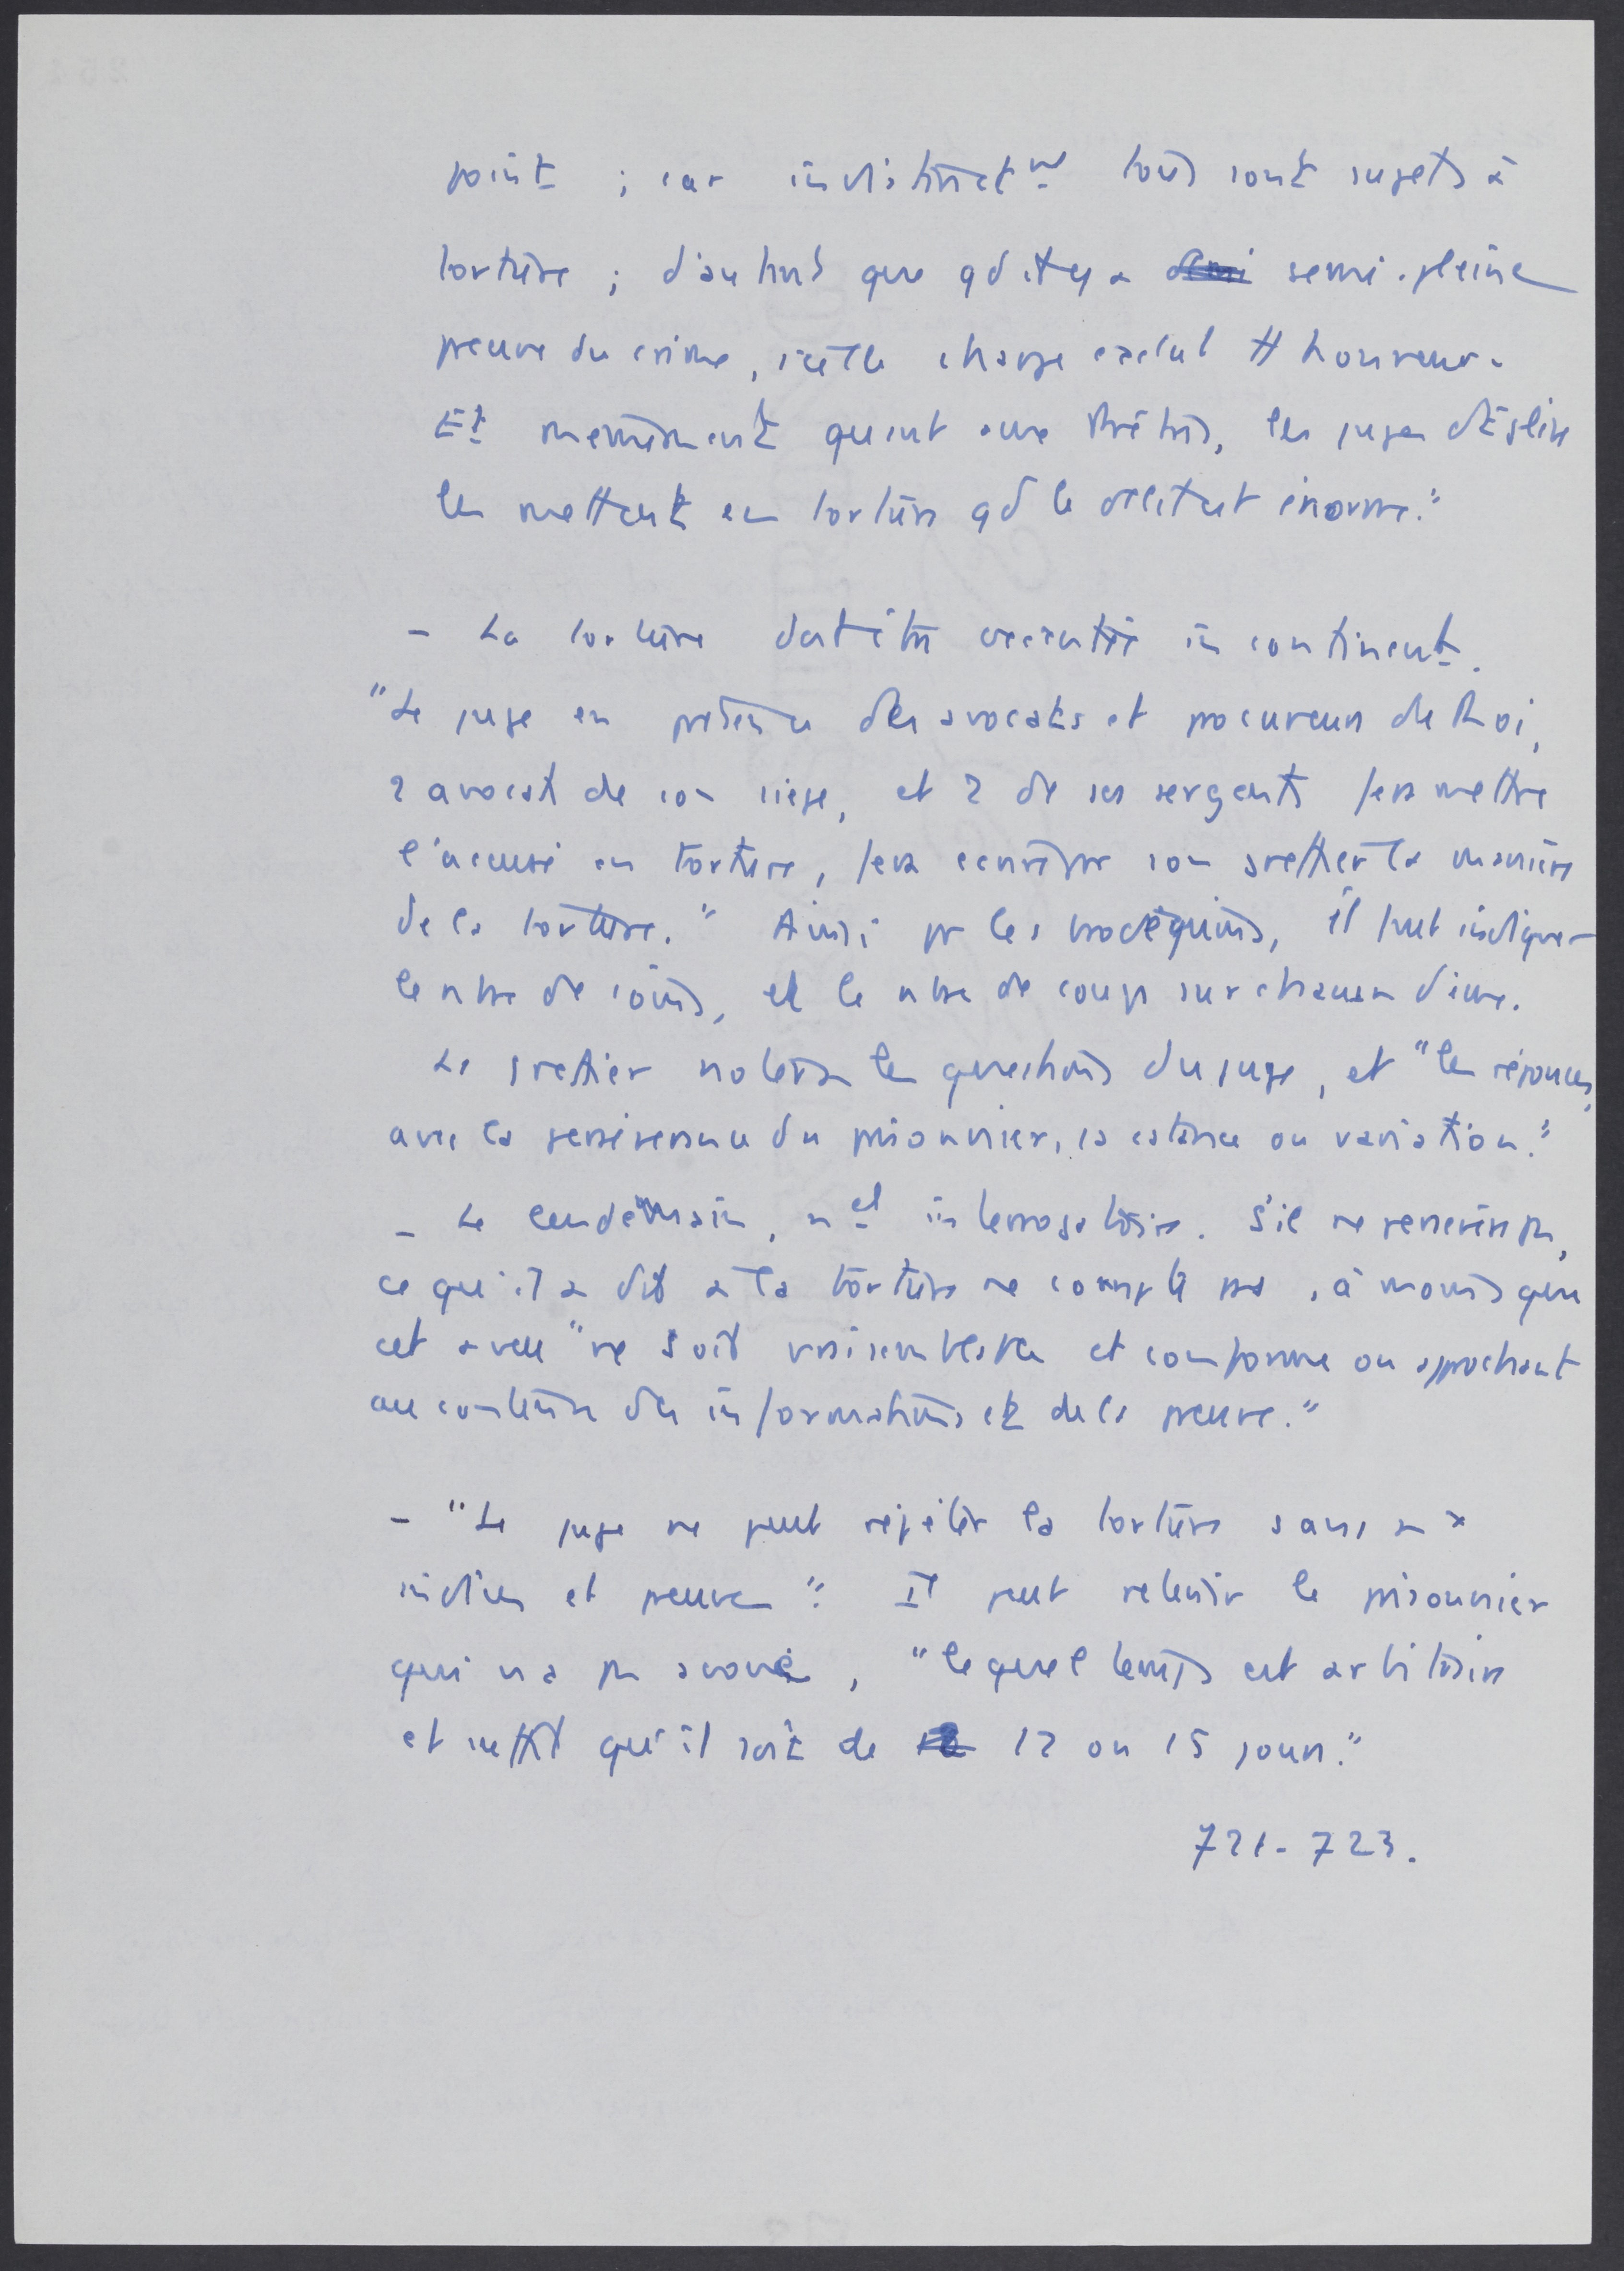 point ; car indistinct^mt tous sont sujets à
torture ; d'autant que qd il y a semi-pleine
preuve du crime, cette charge exclut tt honneur.
Et mêmement quant aux Prêtres, les juges d'Église
les mettent en torture qd le délit est énorme."
- La torture doit être exécutée incontinent.
"Le juge en présence des avocats et procureurs du Roi,
2 avocats de son siège, et 2 de ses sergents fera mettre
l'accusé en torture, fera écrire par son greffier la manière
de la torture." Ainsi pr les brodequins, il faut indiquer
le nbre de coins, et le nbre de coups sur chacun d'eux.
Le greffier notera les questions du juge, et "les réponses,
avec la persévérance du prisonnier, sa constance ou variation."
- Le lendemain, nel interrogatoire. S'il ne persévère pas,
ce qu'il a dit à la torture ne compte pas, à moins que
cet aveu "ne soit vraisemblable et conforme ou approchant
au contenu des informations et de la preuve."
- "Le juge ne peut répéter la torture sans nx
indices et preuves". Il peut retenir le prisonnier
qui n'a pas avoué, "lequel temps est arbitraire
et suffit qu'il soit de 12 ou 15 jours."
721-723.